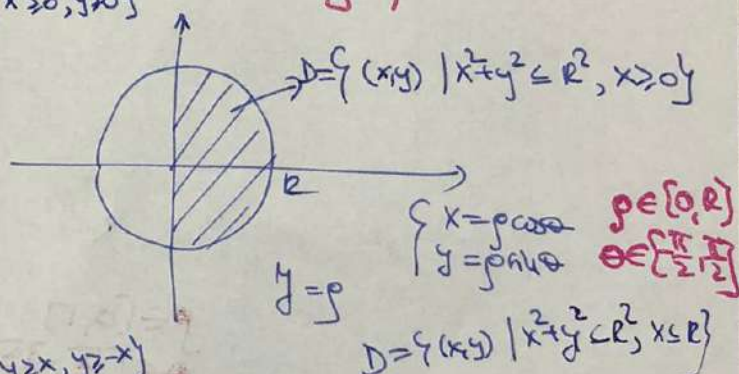 x≥0, y≥0}
D={(x,y) | x²+y² ≤ R², x≥0}
R
{ x=ρcosθ ρ∈[0,R]
y=ρsinθ θ∈[-π/2, π/2]
J=ρ
y≥x, y≥-x}
D={(x,y) | x²+y² ≤ R², x≤R}